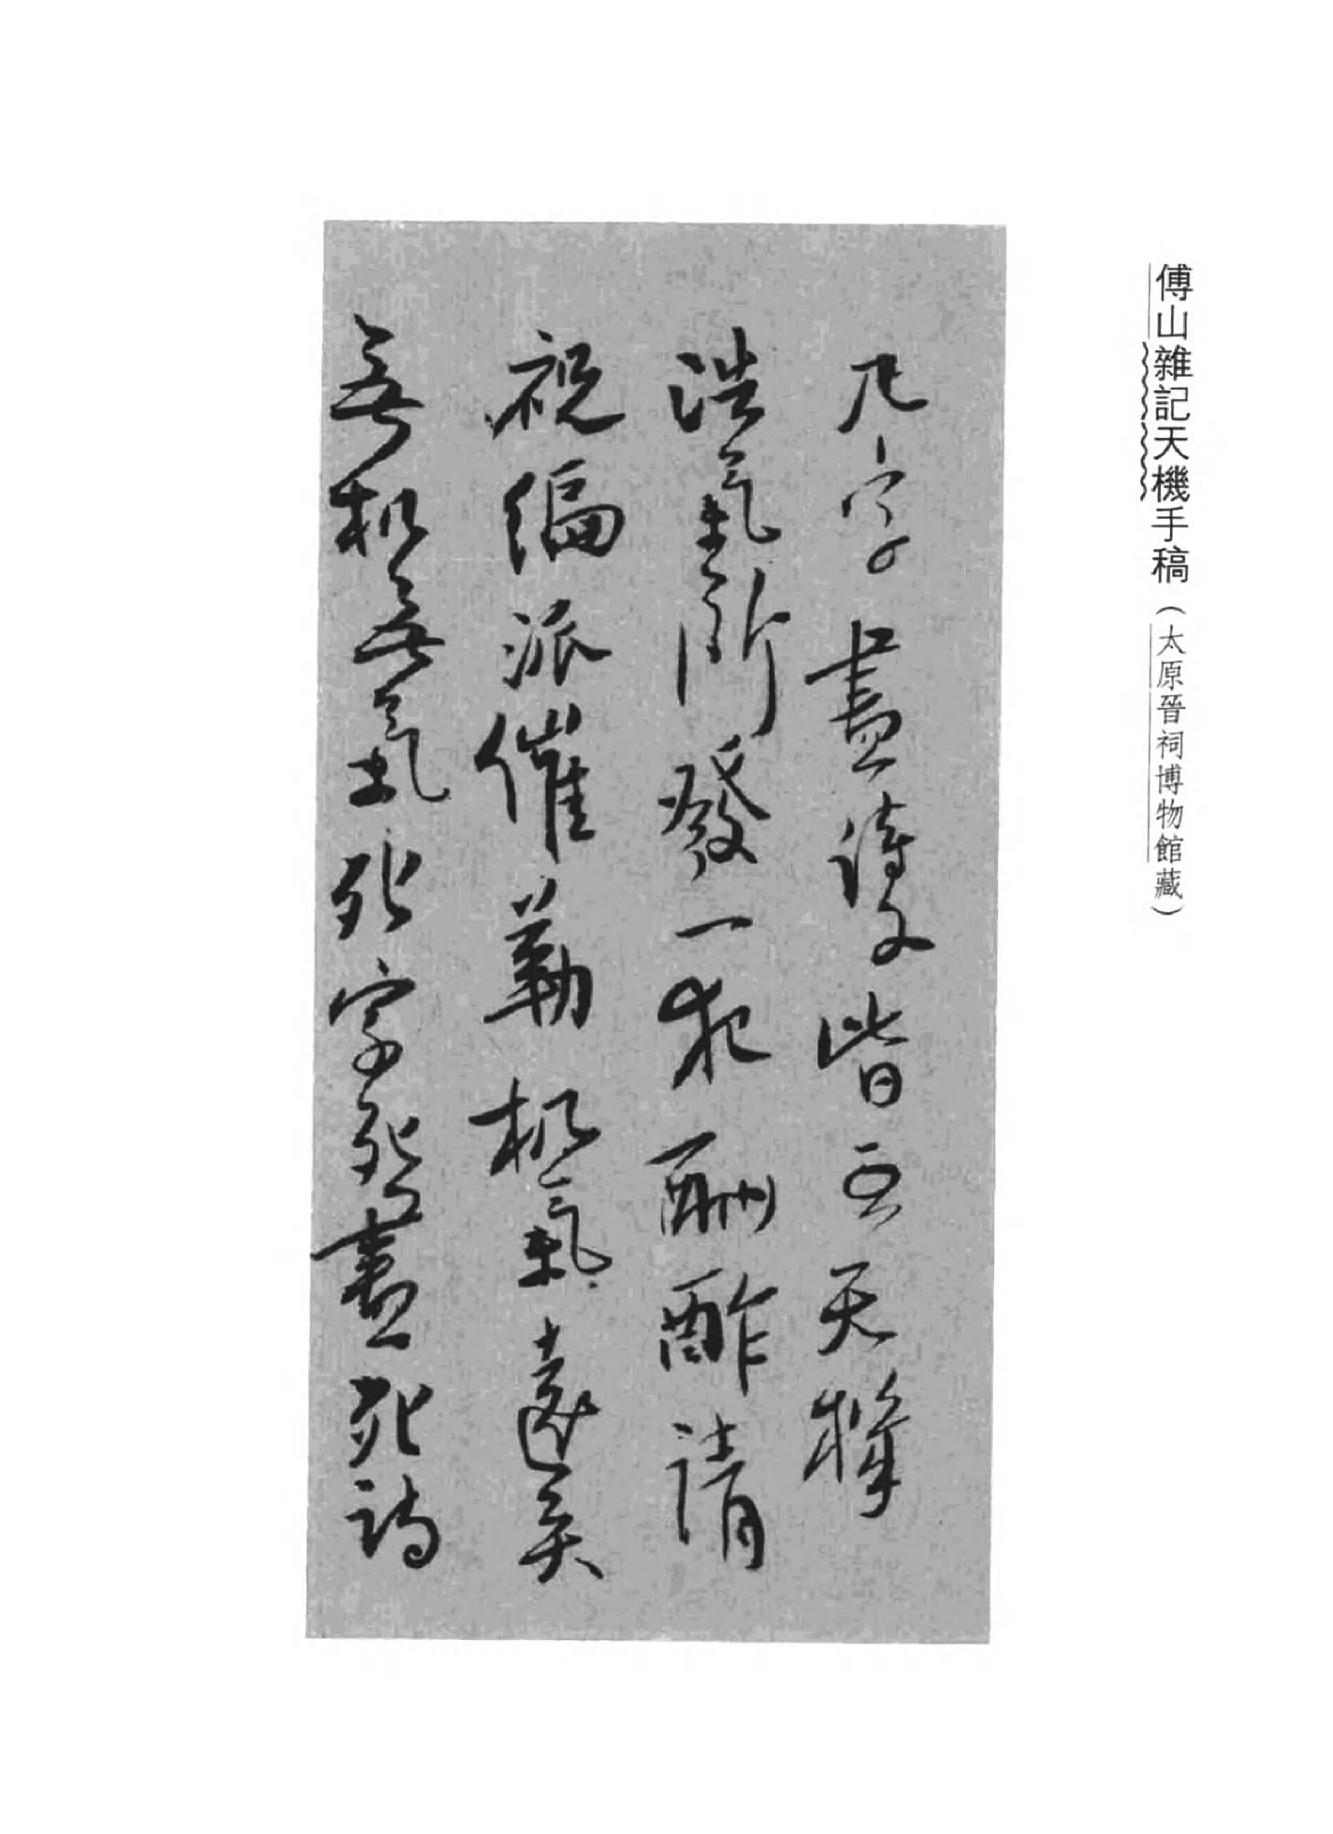 傅山雜記天機手稿（太原晉祠博物館藏）
凡字畫詩文皆天機
浩氣所發一犯酬酢請
祝編派催勒机氣遠矣
無机無氣死字死畫死詩